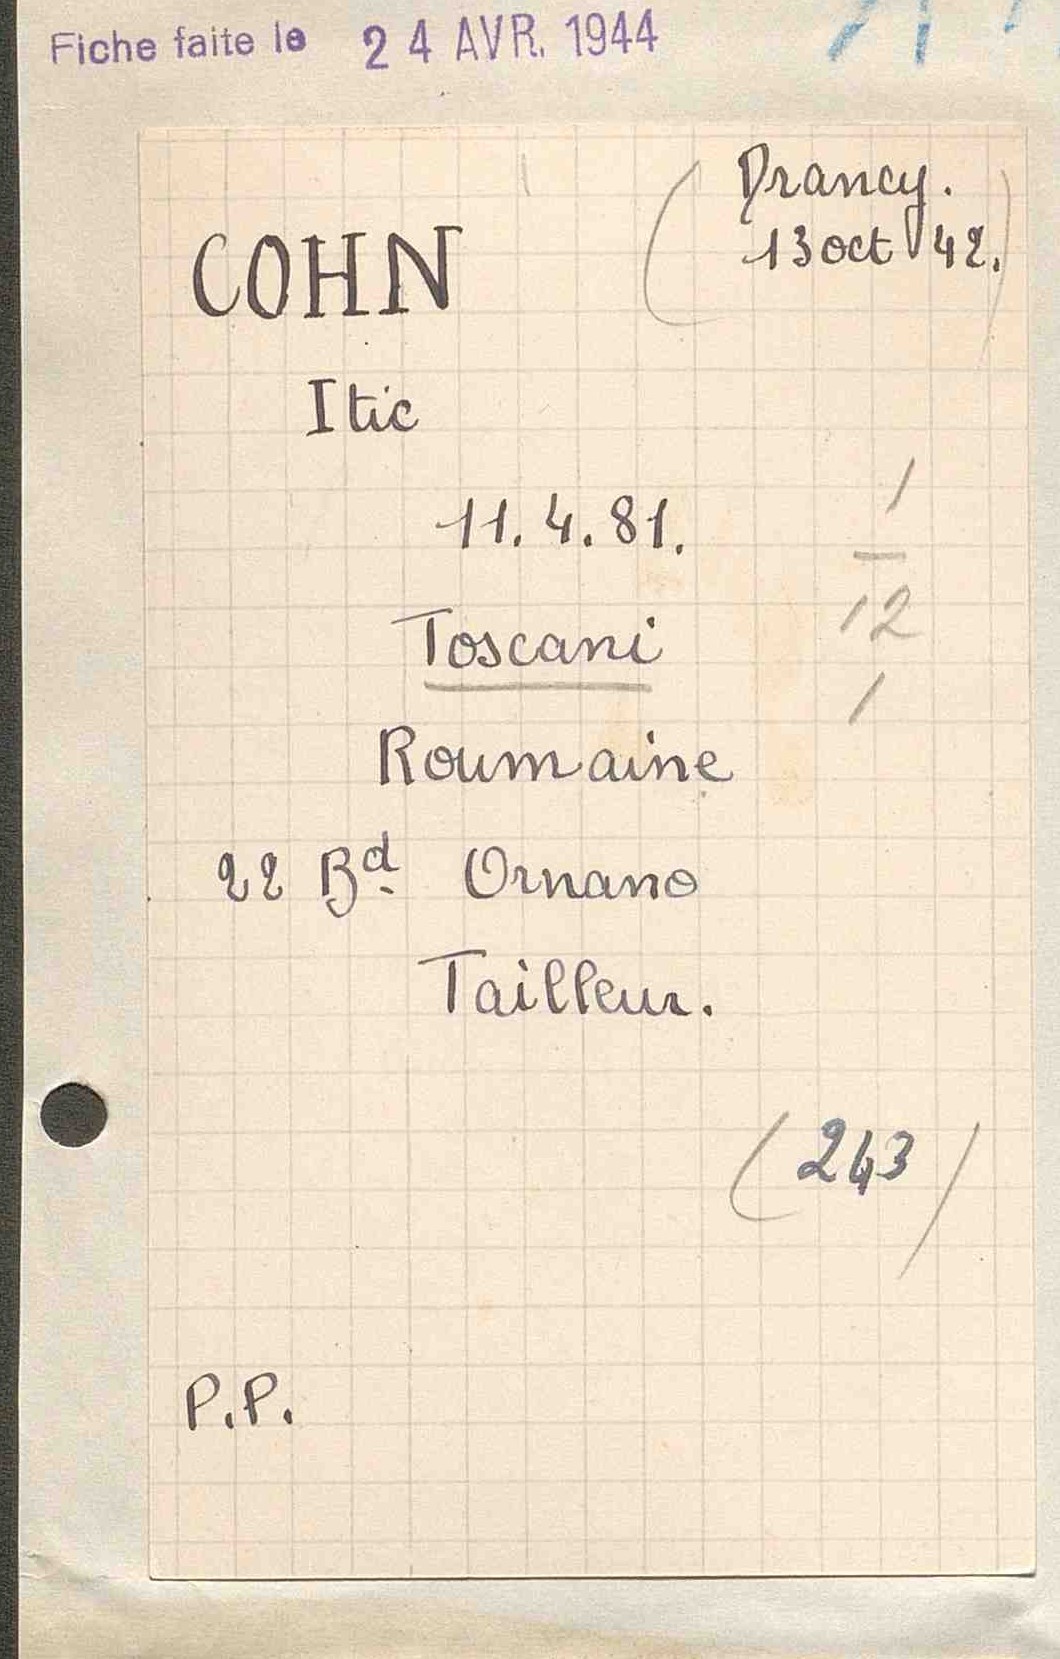 Fiche faite le 24 AVR. 1944
Drancy.
13 oct 42.
COHN
Itic
11.4.81.
1
12
1
Toscani
Roumaine
22 Bd Ornano
Tailleur.
(243)
P.P.